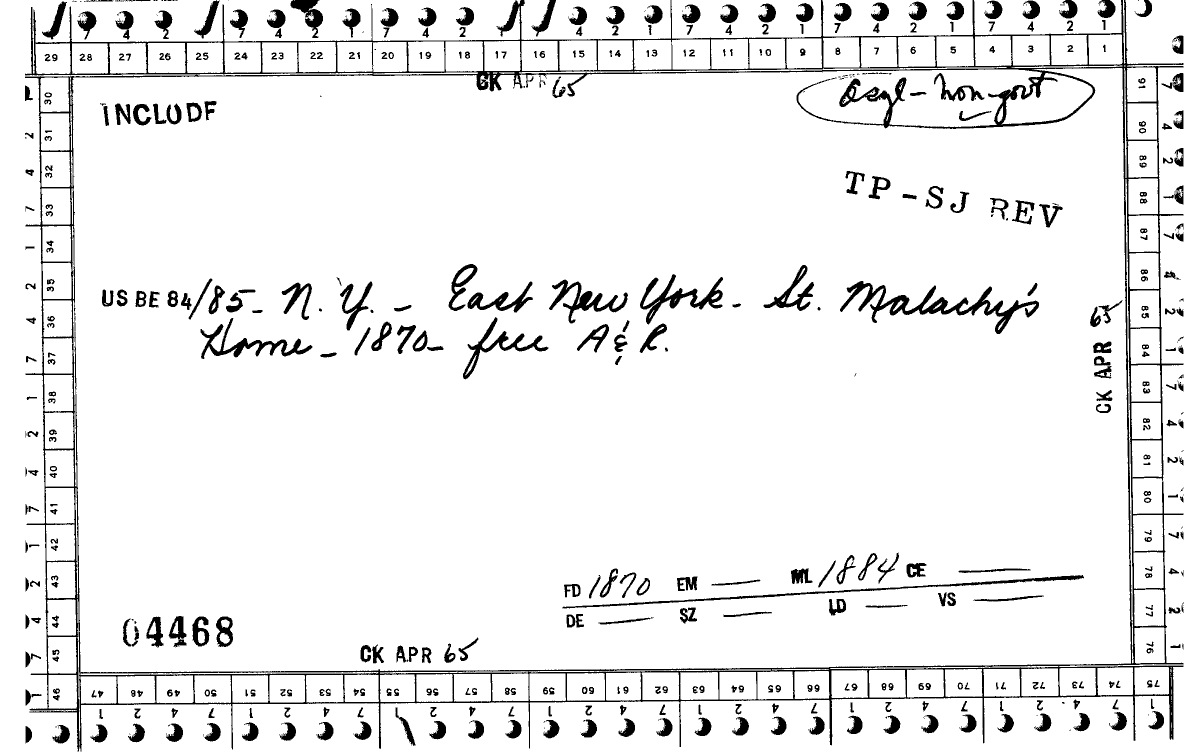 7 4 2 7 4 2 1 7 4 2 4 2 1 7 4 2 1 7 4 2 1 7 4 2 1
29 28 27 26 25 24 23 22 21 20 19 18 17 16 15 14 13 12 11 10 9 8 7 6 5 4 3 2 1
CK APR 65
INCLUDE
asyl - non-govt
TP-SJ REV
US BE 84/85 - N.Y. - East New York - St. Malachy's
Home - 1870 - free A & R.
CK APR 65
FD 1870 EM — ML 1884 CE —
DE — SZ — LD — VS —
04468
CK APR 65
30 31 32 33 34 35 36 37 38 39 40 41 42 43 44 45 46
2 4 7 1 2 4 7 1 2 4 7 1 2 4 7 1
91 90 89 88 87 86 85 84 83 82 81 80 79 78 77 76
47 48 49 50 51 52 53 54 55 56 57 58 59 60 61 62 63 64 65 66 67 68 69 70 71 72 73 74 75
1 2 4 7 1 2 4 7 1 2 4 7 1 2 4 7 1 2 4 7 1 2 4 7 1 2 4 7 1